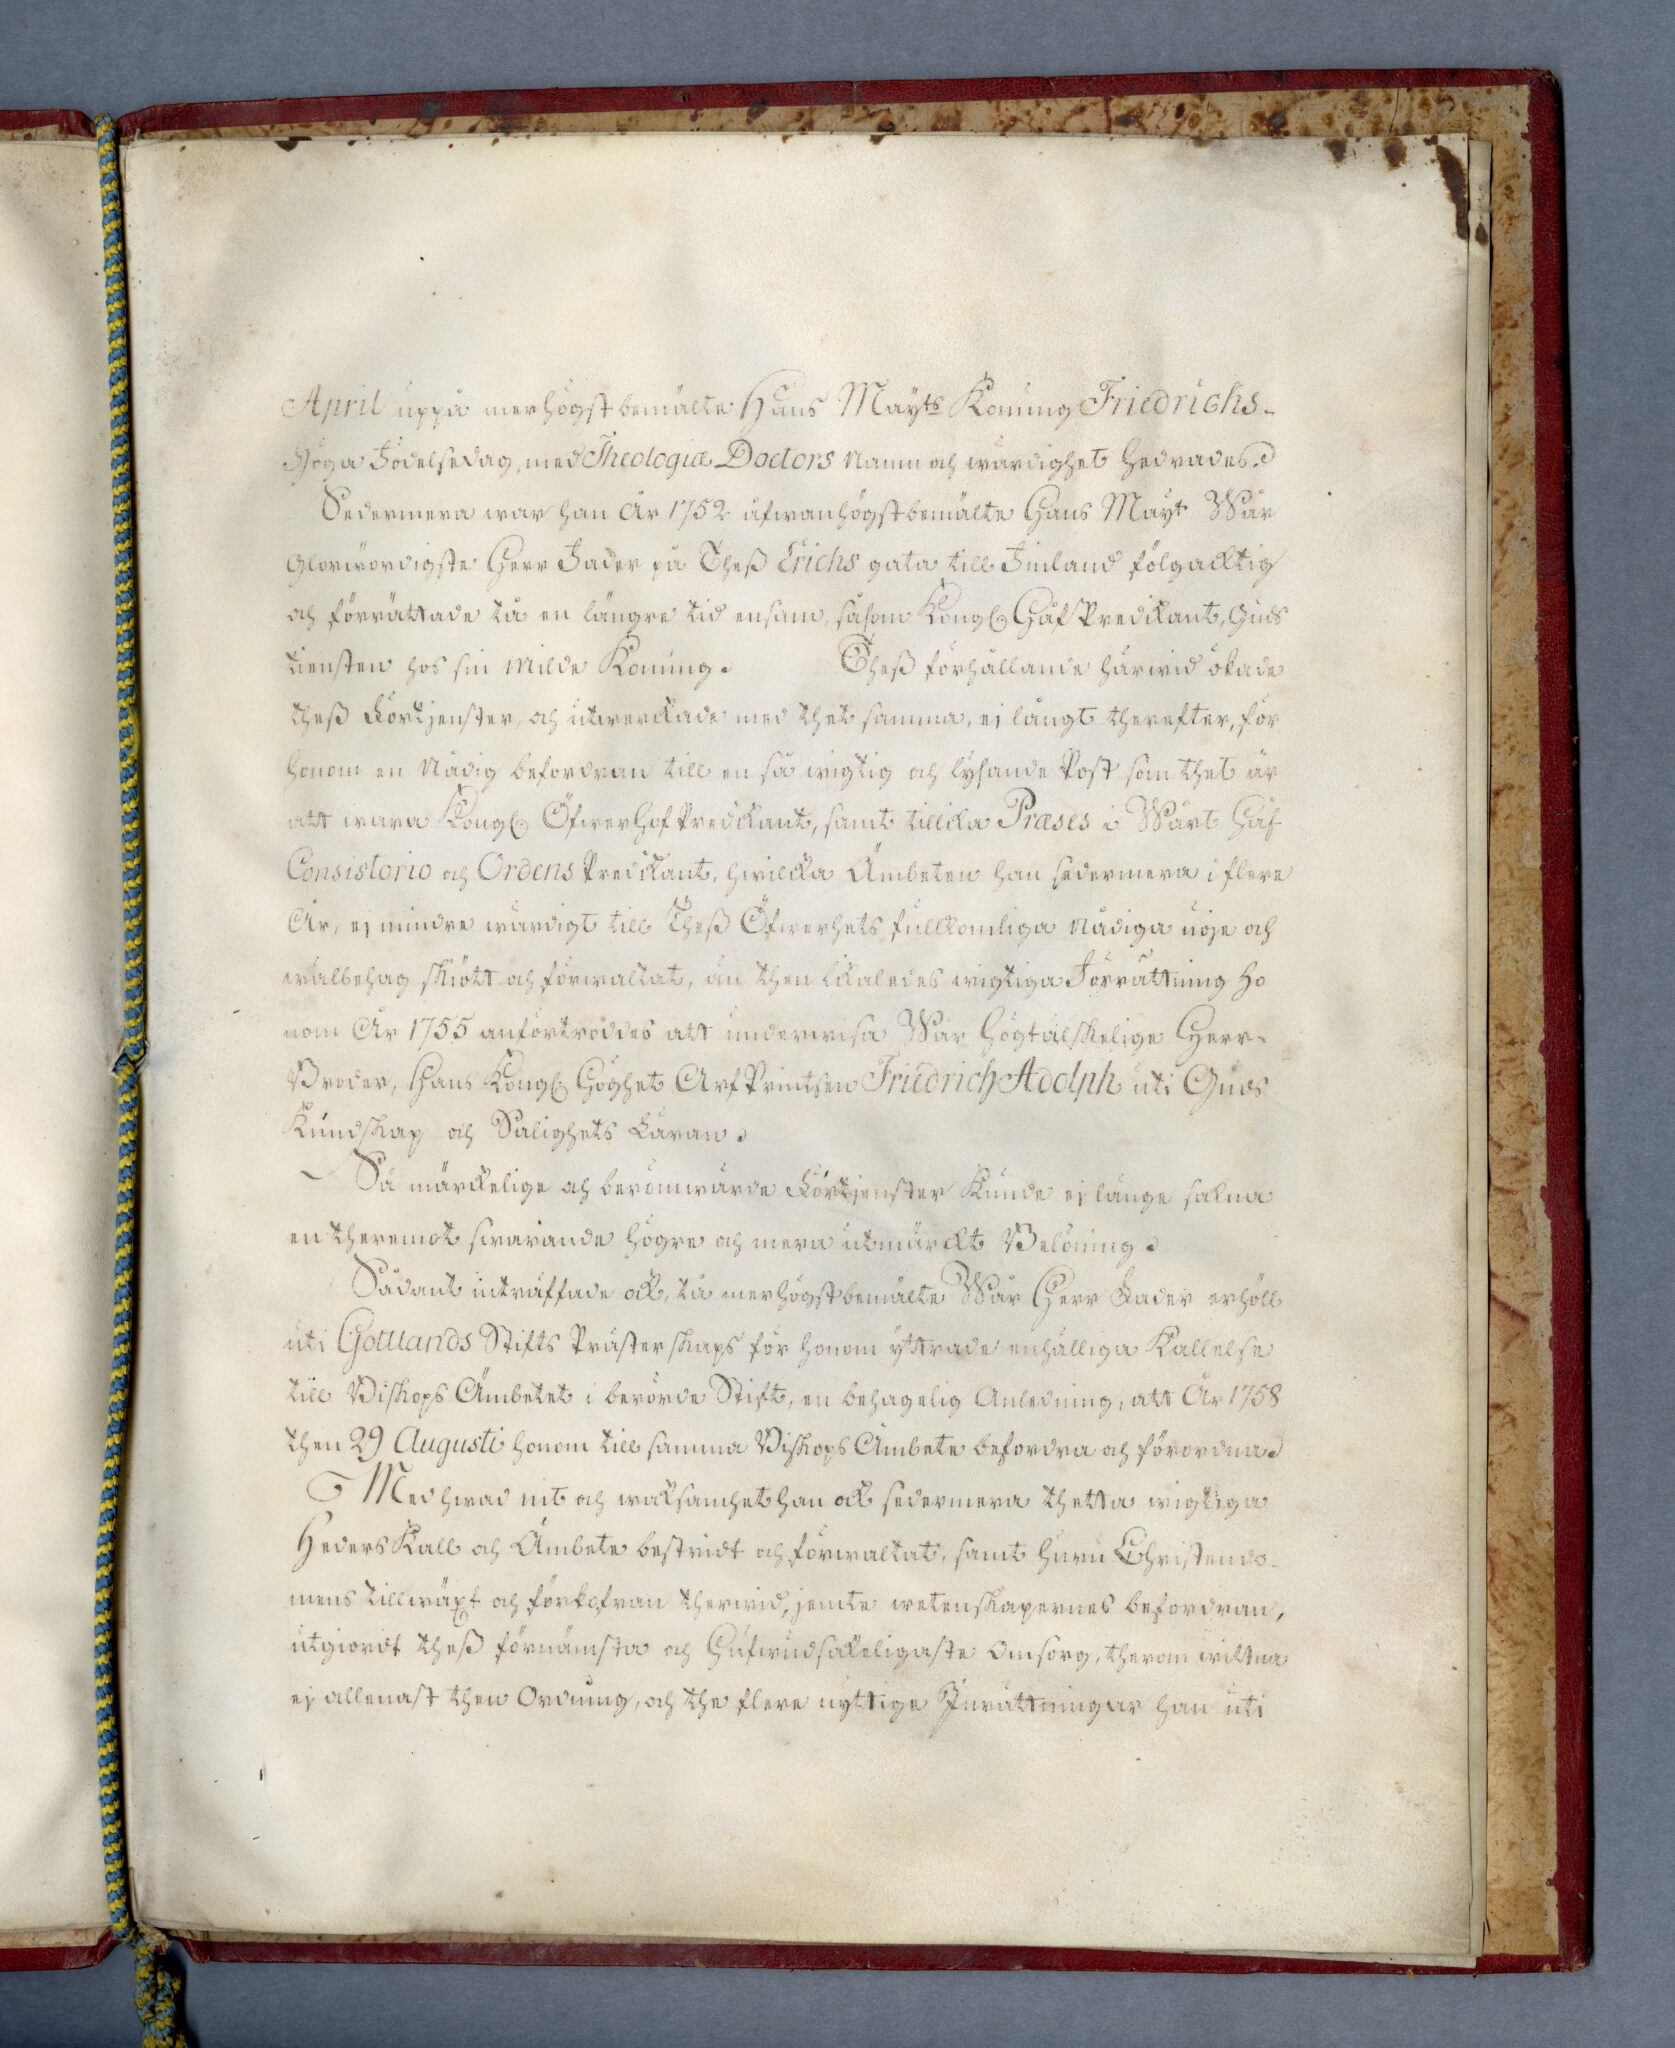 April uppå merhögstbemälte Hans Mayts Konung Friedrichs
Höga Födelsedag, med Theologiæ Doctors Namn och wärdighet hedrades.
Sedermera war han År 1752 äfwanhögstbemälte Hans Mayt Wår
Glorwördigste Herr Fader på Thesz Erichs gata till Finland fölgacktig
och förrättade tå en längre tid ensam, såsom Kongl. Håf Predikant, Guds
tiensten hos sin milde Konung. Thesz förhållande härwid ökade
thesz Förtjenster, och utwerckade med thet samma, ej långt therefter, för
honom en Nådig befordran till en så wigtig och lysande Post som thet är
att wara Kongl. Öfwerhof Predikant, samt tillika Præses i Wårt Håf
Consistorio och Ordens Predikant, hwilcka Ämbeten han sedermera i flere
År, ej mindre wärdigt till Thesz Öfwerhets fullkomliga Nådiga nöje och
wälbehag skiött och förwaltat, än then likaledes wigtiga Förrättning ho
nom År 1755 anförtroddes att underwisa Wår Högtälskelige Herr
Broder, Hans Kongl. Höghet Arf Printsen Friedrich Adolph uti Guds
Kundskap och Salighets Läran.
Så märckelige och berömwärde Förtjenster kunde ej länge sakna
en theremot swarande högre och mera utmärckt Belöning.
Sådant inträffade ock, tå merhögstbemälte Wår Herr Fader erhöll
uti Gottlands Stifts Prästerskaps för honom yttrade enhälliga Kallelse
till Biskops Ämbetet i berörde Stift, en behagelig Anledning, att År 1758
then 29 Augusti honom till samma Biskops Ämbete befordra och förordna.
Med hwad nit och waksamhet han ock sedermera thetta wigtiga
Heders Kall och Ämbete bestridt och förwaltat, samt huru Christendo-
mens tillwäxt och förkofran therwid, jemte wetenskapernes befordran,
utgiordt thesz förnämsta och Hufwudsakeligaste Omsorg, therom wittna
ej allenast then Ordning, och the flere nyttige Inrättningar han uti